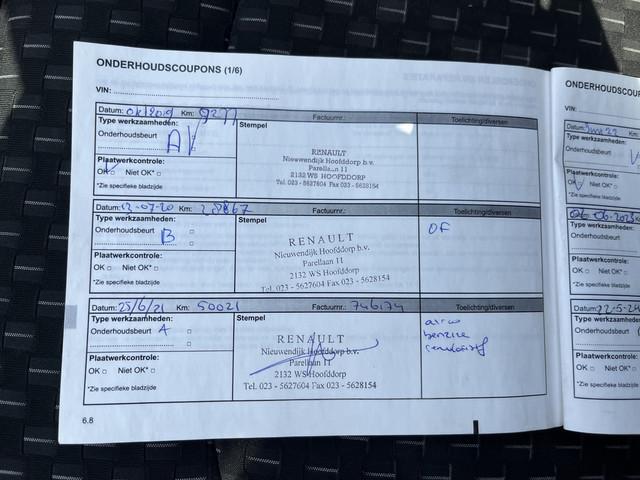 ONDERHOUDSCOUPONS (1/6)
VIN:
Datum: okt 2019 Km: 9277 Factuurnr.: Toelichting/diversen
Type werkzaamheden: Stempel
Onderhoudsbeurt A
RENAULT
Nieuwendijk Hoofddorp b.v.
Parellaan 11
2132 WS HOOFDDORP
Tel. 023 - 5627604 Fax 023 - 5628154
Plaatwerkcontrole:
OK Niet OK*
*Zie specifieke bladzijde
Datum: 12-07-20 Km: Factuurnr.: Toelichting/diversen
Type werkzaamheden: Stempel
Onderhoudsbeurt B
OF
RENAULT
Nieuwendijk Hoofddorp b.v.
Parellaan 11
2132 WS Hoofddorp
Tel. 023 - 5627604 Fax 023 - 5628154
Plaatwerkcontrole:
OK Niet OK*
*Zie specifieke bladzijde
Datum: 25/6/21 Km: 50021 Factuurnr.: 746174 Toelichting/diversen
Type werkzaamheden: Stempel
Onderhoudsbeurt A
airco
benzine
RENAULT
Nieuwendijk Hoofddorp b.v.
Parellaan 11
2132 WS Hoofddorp
Tel. 023 - 5627604 Fax 023 - 5628154
Plaatwerkcontrole:
OK Niet OK*
*Zie specifieke bladzijde
6.8
ONDERHOUDSCOUP
VIN:
Datum:
Type werkzaamheden:
Onderhoudsbeurt
Plaatwerkcontrole:
OK Niet OK*
*Zie specifieke bladzijde
06-06-2023
Type werkzaamheden:
Onderhoudsbeurt
Plaatwerkcontrole:
OK Niet OK*
*Zie specifieke bladzijde
Datum: 22-5-24
Type werkzaamheden:
Onderhoudsbeurt
Plaatwerkcontrole:
OK Niet OK*
*Zie specifieke bladzijde